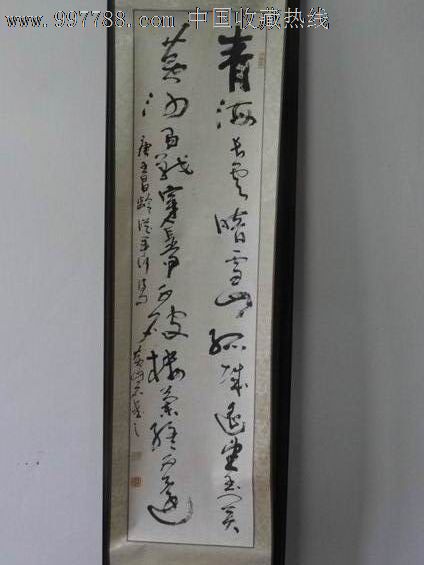 www.997788.com 中国收藏热线
青海长云暗雪山孤城遥望玉门关
黄沙百战穿金甲不破楼兰终不还
唐王昌龄从军行诗句